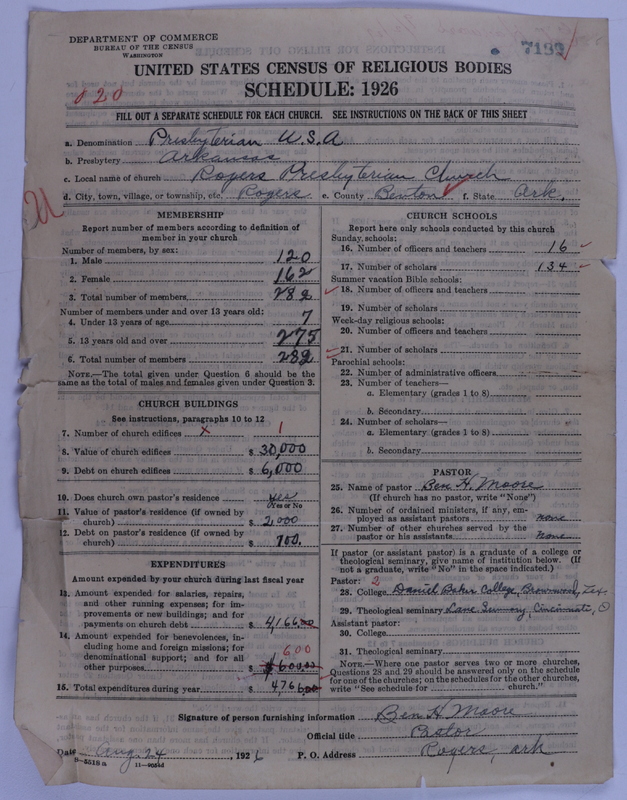 DEPARTMENT OF COMMERCE
BUREAU OF THE CENSUS
WASHINGTON
7189
UNITED STATES CENSUS OF RELIGIOUS BODIES
SCHEDULE: 1926
820
FILL OUT A SEPARATE SCHEDULE FOR EACH CHURCH. SEE INSTRUCTIONS ON THE BACK OF THIS SHEET
a. Denomination Presbyterian U.S.A
b. Presbytery Arkansas
c. Local name of church Rogers Presbyterian Church
d. City, town, village, or township, etc. Rogers e. County Benton f. State Ark.
MEMBERSHIP
Report number of members according to definition of
member in your church
Number of members, by sex:
1. Male 120
2. Female 162
3. Total number of members 282
Number of members under and over 13 years old:
4. Under 13 years of age 7
5. 13 years old and over 275
6. Total number of members 282
NOTE.—The total given under Question 6 should be the
same as the total of males and females given under Question 3.
CHURCH BUILDINGS
See instructions, paragraphs 10 to 12
7. Number of church edifices x 1
8. Value of church edifices $ 30,000
9. Debt on church edifices $ 6,000
10. Does church own pastor's residence yes
Yes or No
11. Value of pastor's residence (if owned by
church) $ 2,000
12. Debt on pastor's residence (if owned by
church) $ 700.
EXPENDITURES
Amount expended by your church during last fiscal year
13. Amount expended for salaries, repairs,
and other running expenses; for im-
provements or new buildings; and for
payments on church debt $ 4,166.00
14. Amount expended for benevolences, in-
cluding home and foreign missions; for
denominational support; and for all 600
other purposes $ 600.00
15. Total expenditures during year $ 4766.00
CHURCH SCHOOLS
Report here only schools conducted by this church
Sunday schools:
16. Number of officers and teachers 16
17. Number of scholars 134
Summer vacation Bible schools:
18. Number of officers and teachers
19. Number of scholars
Week-day religious schools:
20. Number of officers and teachers
21. Number of scholars
Parochial schools:
22. Number of administrative officers
23. Number of teachers—
a. Elementary (grades 1 to 8)
b. Secondary
24. Number of scholars—
a. Elementary (grades 1 to 8)
b. Secondary
PASTOR
25. Name of pastor Ben H. Moore
(If church has no pastor, write "None")
26. Number of ordained ministers, if any, em-
ployed as assistant pastors none
27. Number of other churches served by the
pastor or his assistants none
If pastor (or assistant pastor) is a graduate of a college or
theological seminary, give name of institution below. (If
not a graduate, write "No" in the space indicated.)
Pastor: 2
28. College Daniel Baker College, Brownwood, Tex.
29. Theological seminary Lane Seminary, Cincinnati, O
Assistant pastor:
30. College
31. Theological seminary
NOTE.—Where one pastor serves two or more churches,
Questions 28 and 29 should be answered only on the schedule
for one of the churches; on the schedules for the other churches,
write "See schedule for church."
Signature of person furnishing information Ben H Moore
Official title Pastor
Date Aug. 24, 1926 P. O. Address Rogers, Ark
8-5518 a